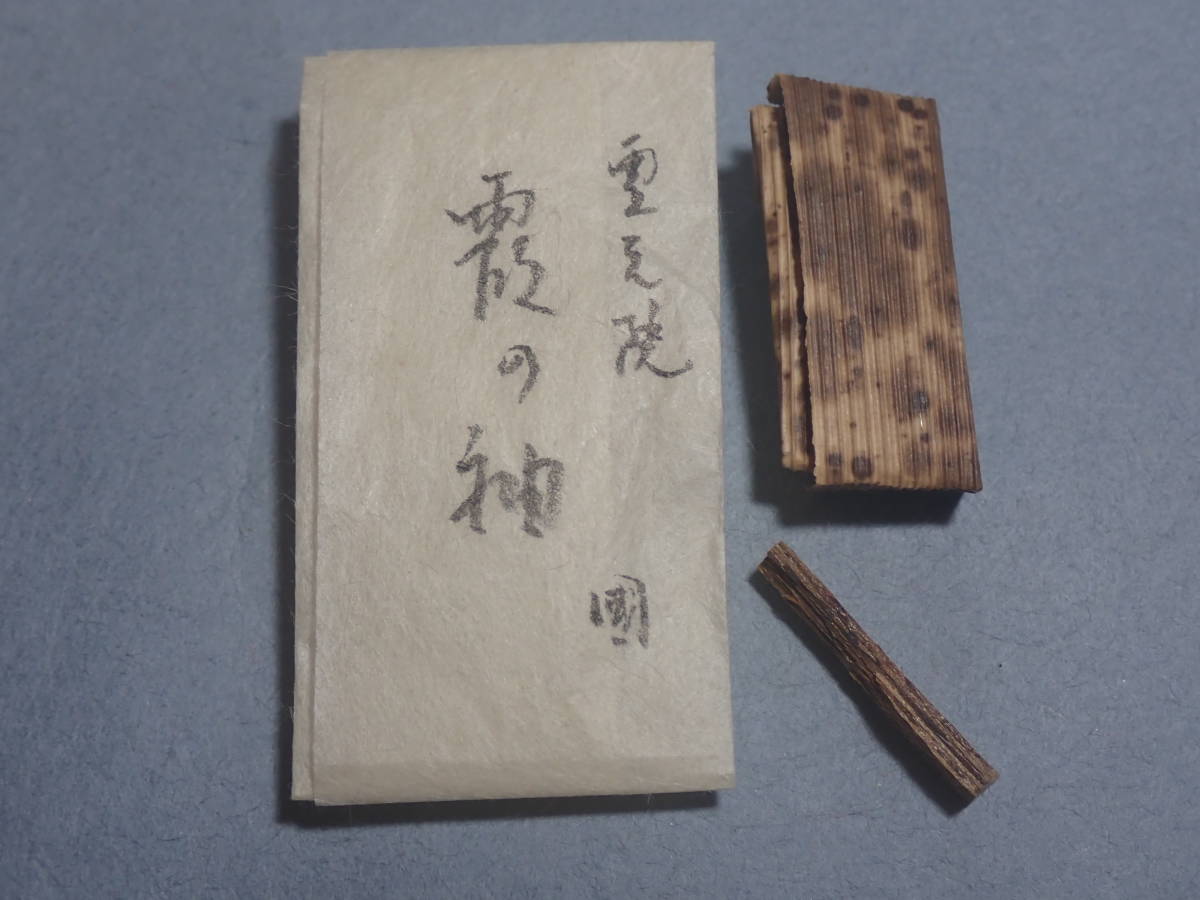 霊元院
霞の袖
國